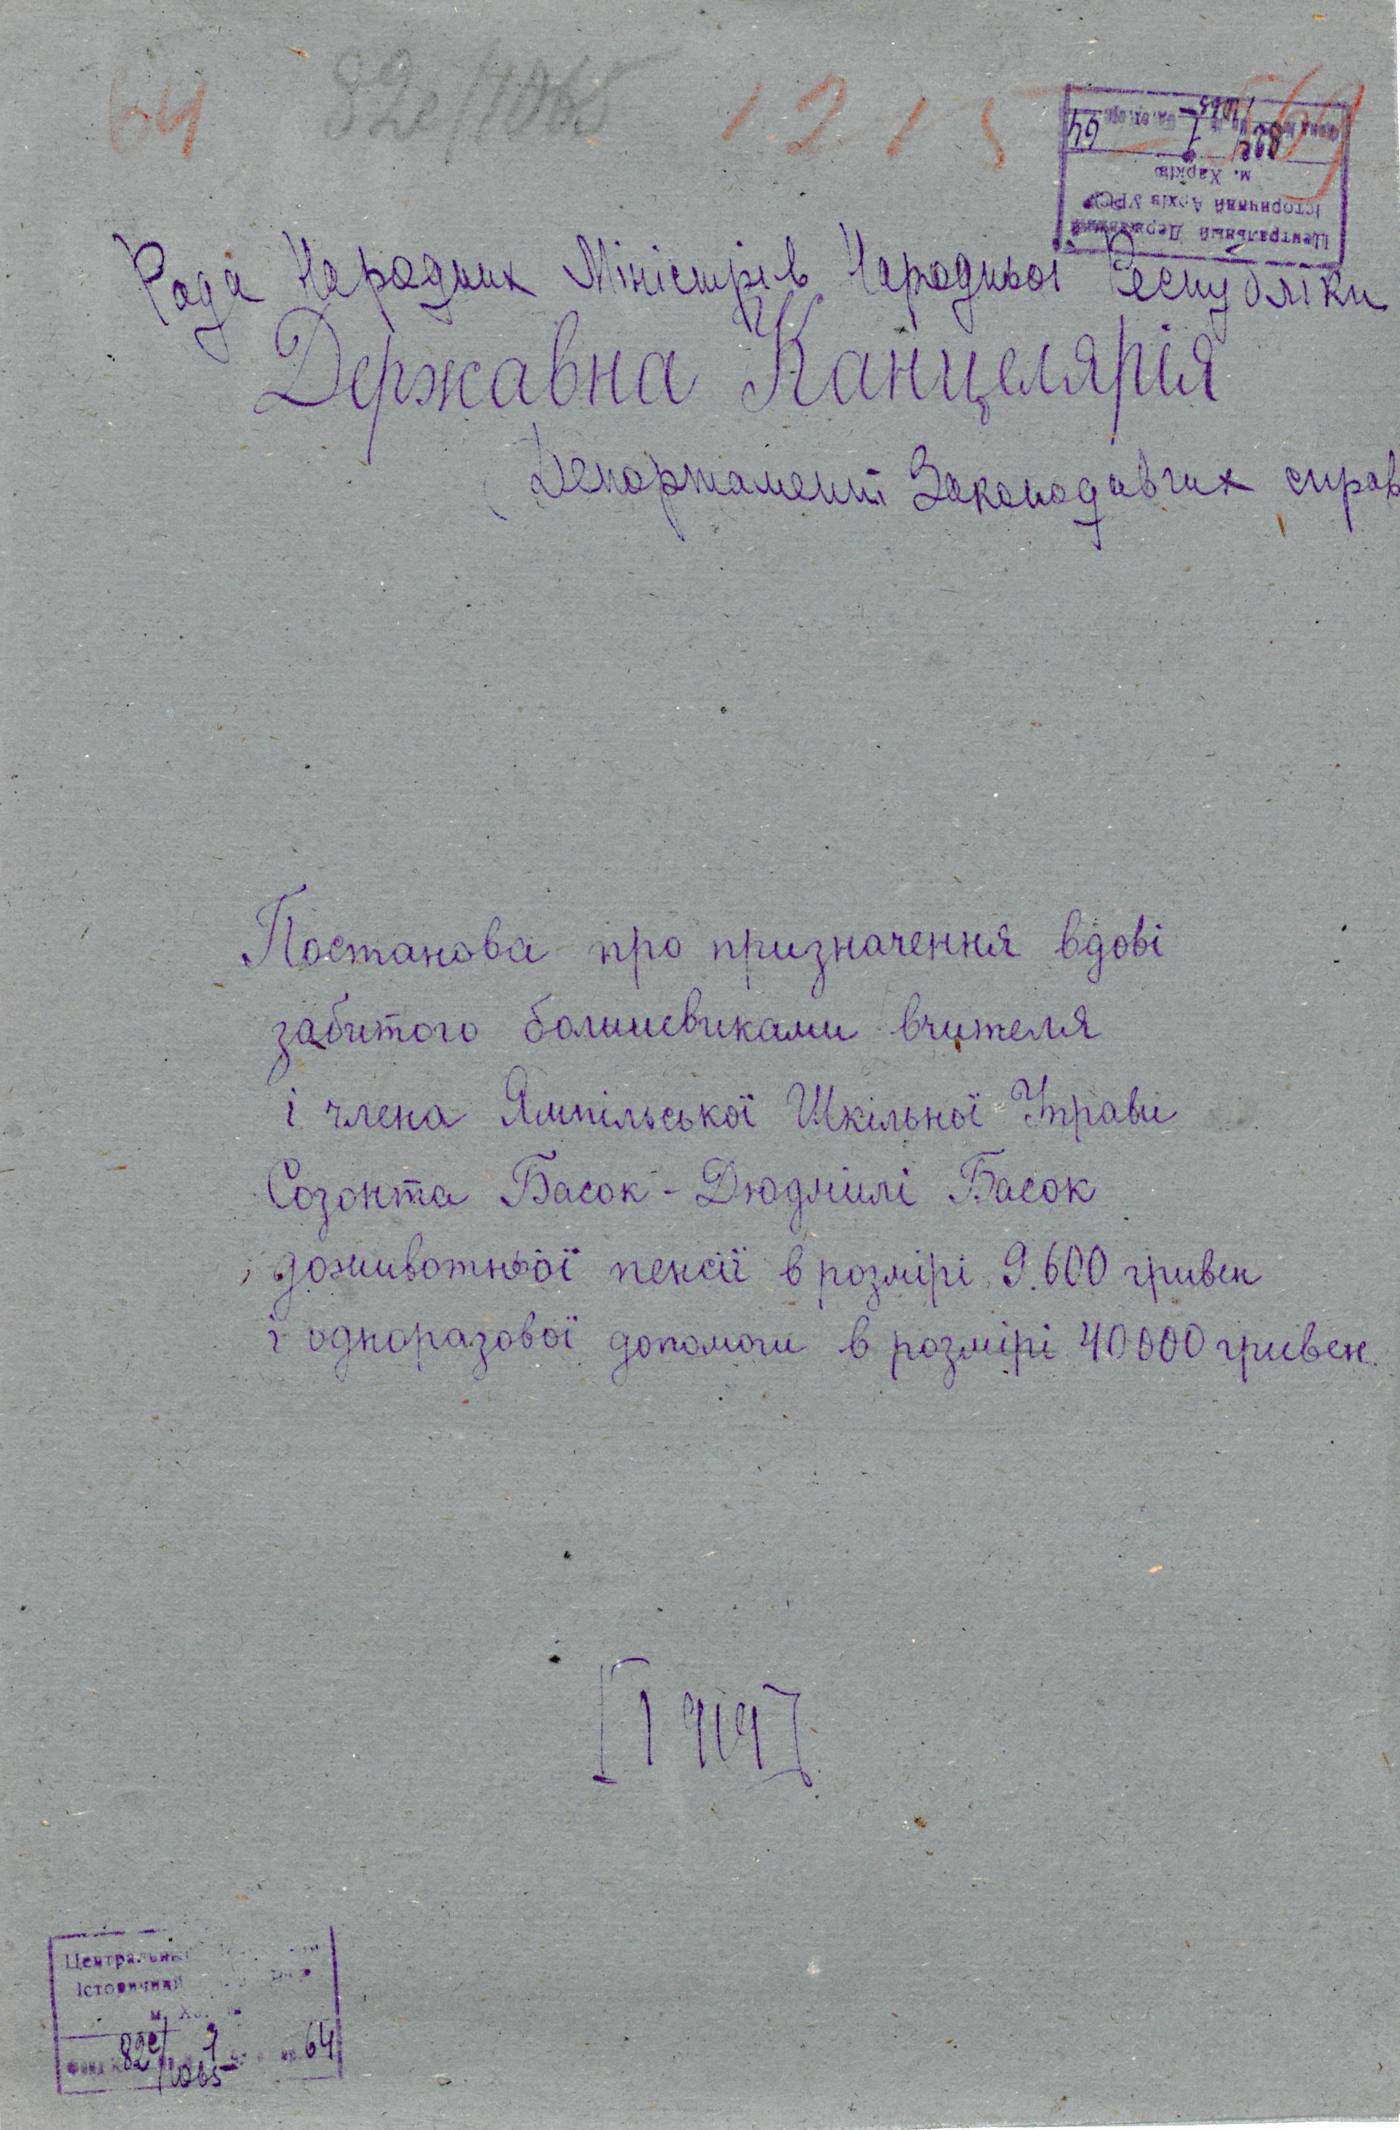 64 82е/1065 1215 569
Центральный Державний
Історичний Архів УРСР
м. Харків
82е/1065 1 64
Рада Народних Міністрів Народньої Республіки
Державна Канцелярія
Департамент Законодавчих справ
Постанова про призначення вдові
забитого большевиками вчителя
і члена Ямпільської Шкільної Управи
Созонта Басок - Людмилі Басок
доживотньої пенсії в розмірі 9.600 гривен
і одноразової допомоги в розмірі 40000 гривен.
[1919]
Центральный
Історичний
м.
Фонд № 82е/1065 1 64